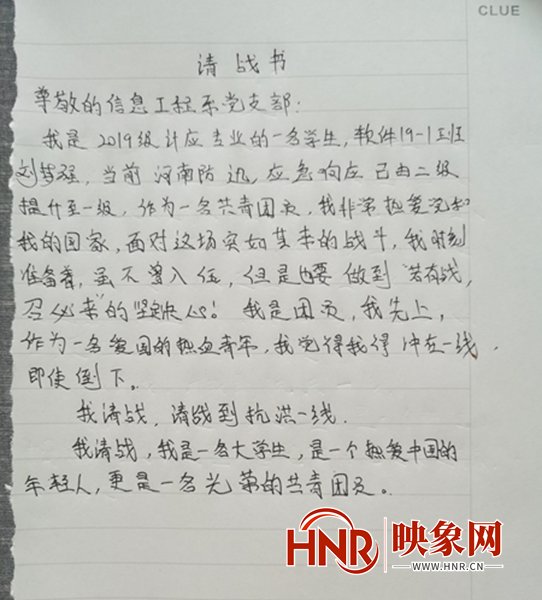 CLUE
请战书
尊敬的信息工程系党支部：
我是2019级计应专业的一名学生，软件19-1班
刘梦强，当前河南防汛，应急响应已由二级
提升至一级，作为一名共青团员，我非常热爱党和
我的国家，面对这场突如其来的战斗，我时刻
准备着，虽不曾入伍，但是也要做到"若有战，
召必来"的坚决心！我是团员，我先上，
作为一名爱国的热血青年，我觉得我得冲在一线，
即使倒下。
我请战，请战到抗洪一线.
我请战，我是一名大学生，是一个热爱中国的
年轻人，更是一名光荣的共青团员。
HNR 映象网
WWW.HNR.CN